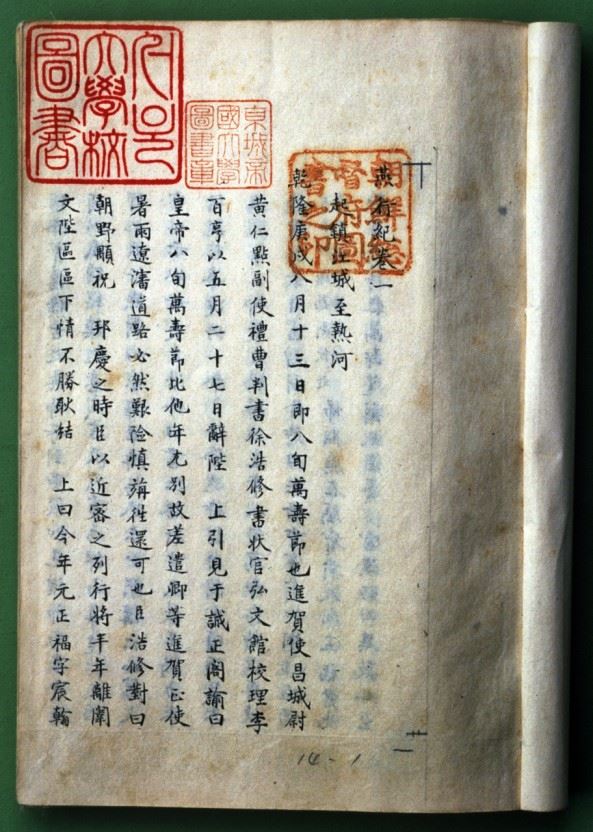 서울
大學校
圖書
京城帝
國大學
圖書章
朝鮮總
督府圖
書之印
燕行紀卷一
起鎭江城至熱河
乾隆庚戌八月十三日即八旬萬壽節也進賀使昌城尉
黃仁點副使禮曹判書徐浩修書狀官弘文館校理李
百亨以五月二十七日辭陛 上引見于誠正閣諭曰
皇帝八旬萬壽節比他年尤別故差遣卿等進賀正使
暑雨遼瀋道路必然艱險愼旃徃還可也臣浩修對曰
朝野顒祝 邦慶之時臣以近密之列行將半年離闈
文陛區區下情不勝耿結 上曰今年元正福字宸翰
14-1